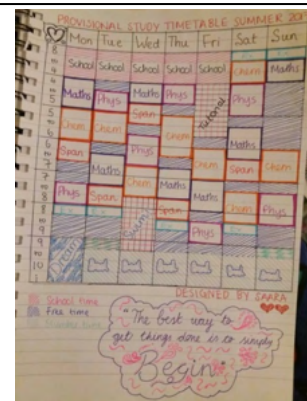 PROVISIONAL STUDY TIMETABLE SUMMER 20
Mon Tue Wed Thu Fri Sat Sun
School School School School School Chem Maths
Maths Phys Maths Phys Tutorial Phys
Span
Chem Chem Chem Chem
Span Phys Maths Span Chem
Maths Chem Maths Maths
Phys Span Swim Span Chem Phys
Phys
DESIGNED BY SAARA
School time
Free time
"The best way to
get things done is to simply
Begin"